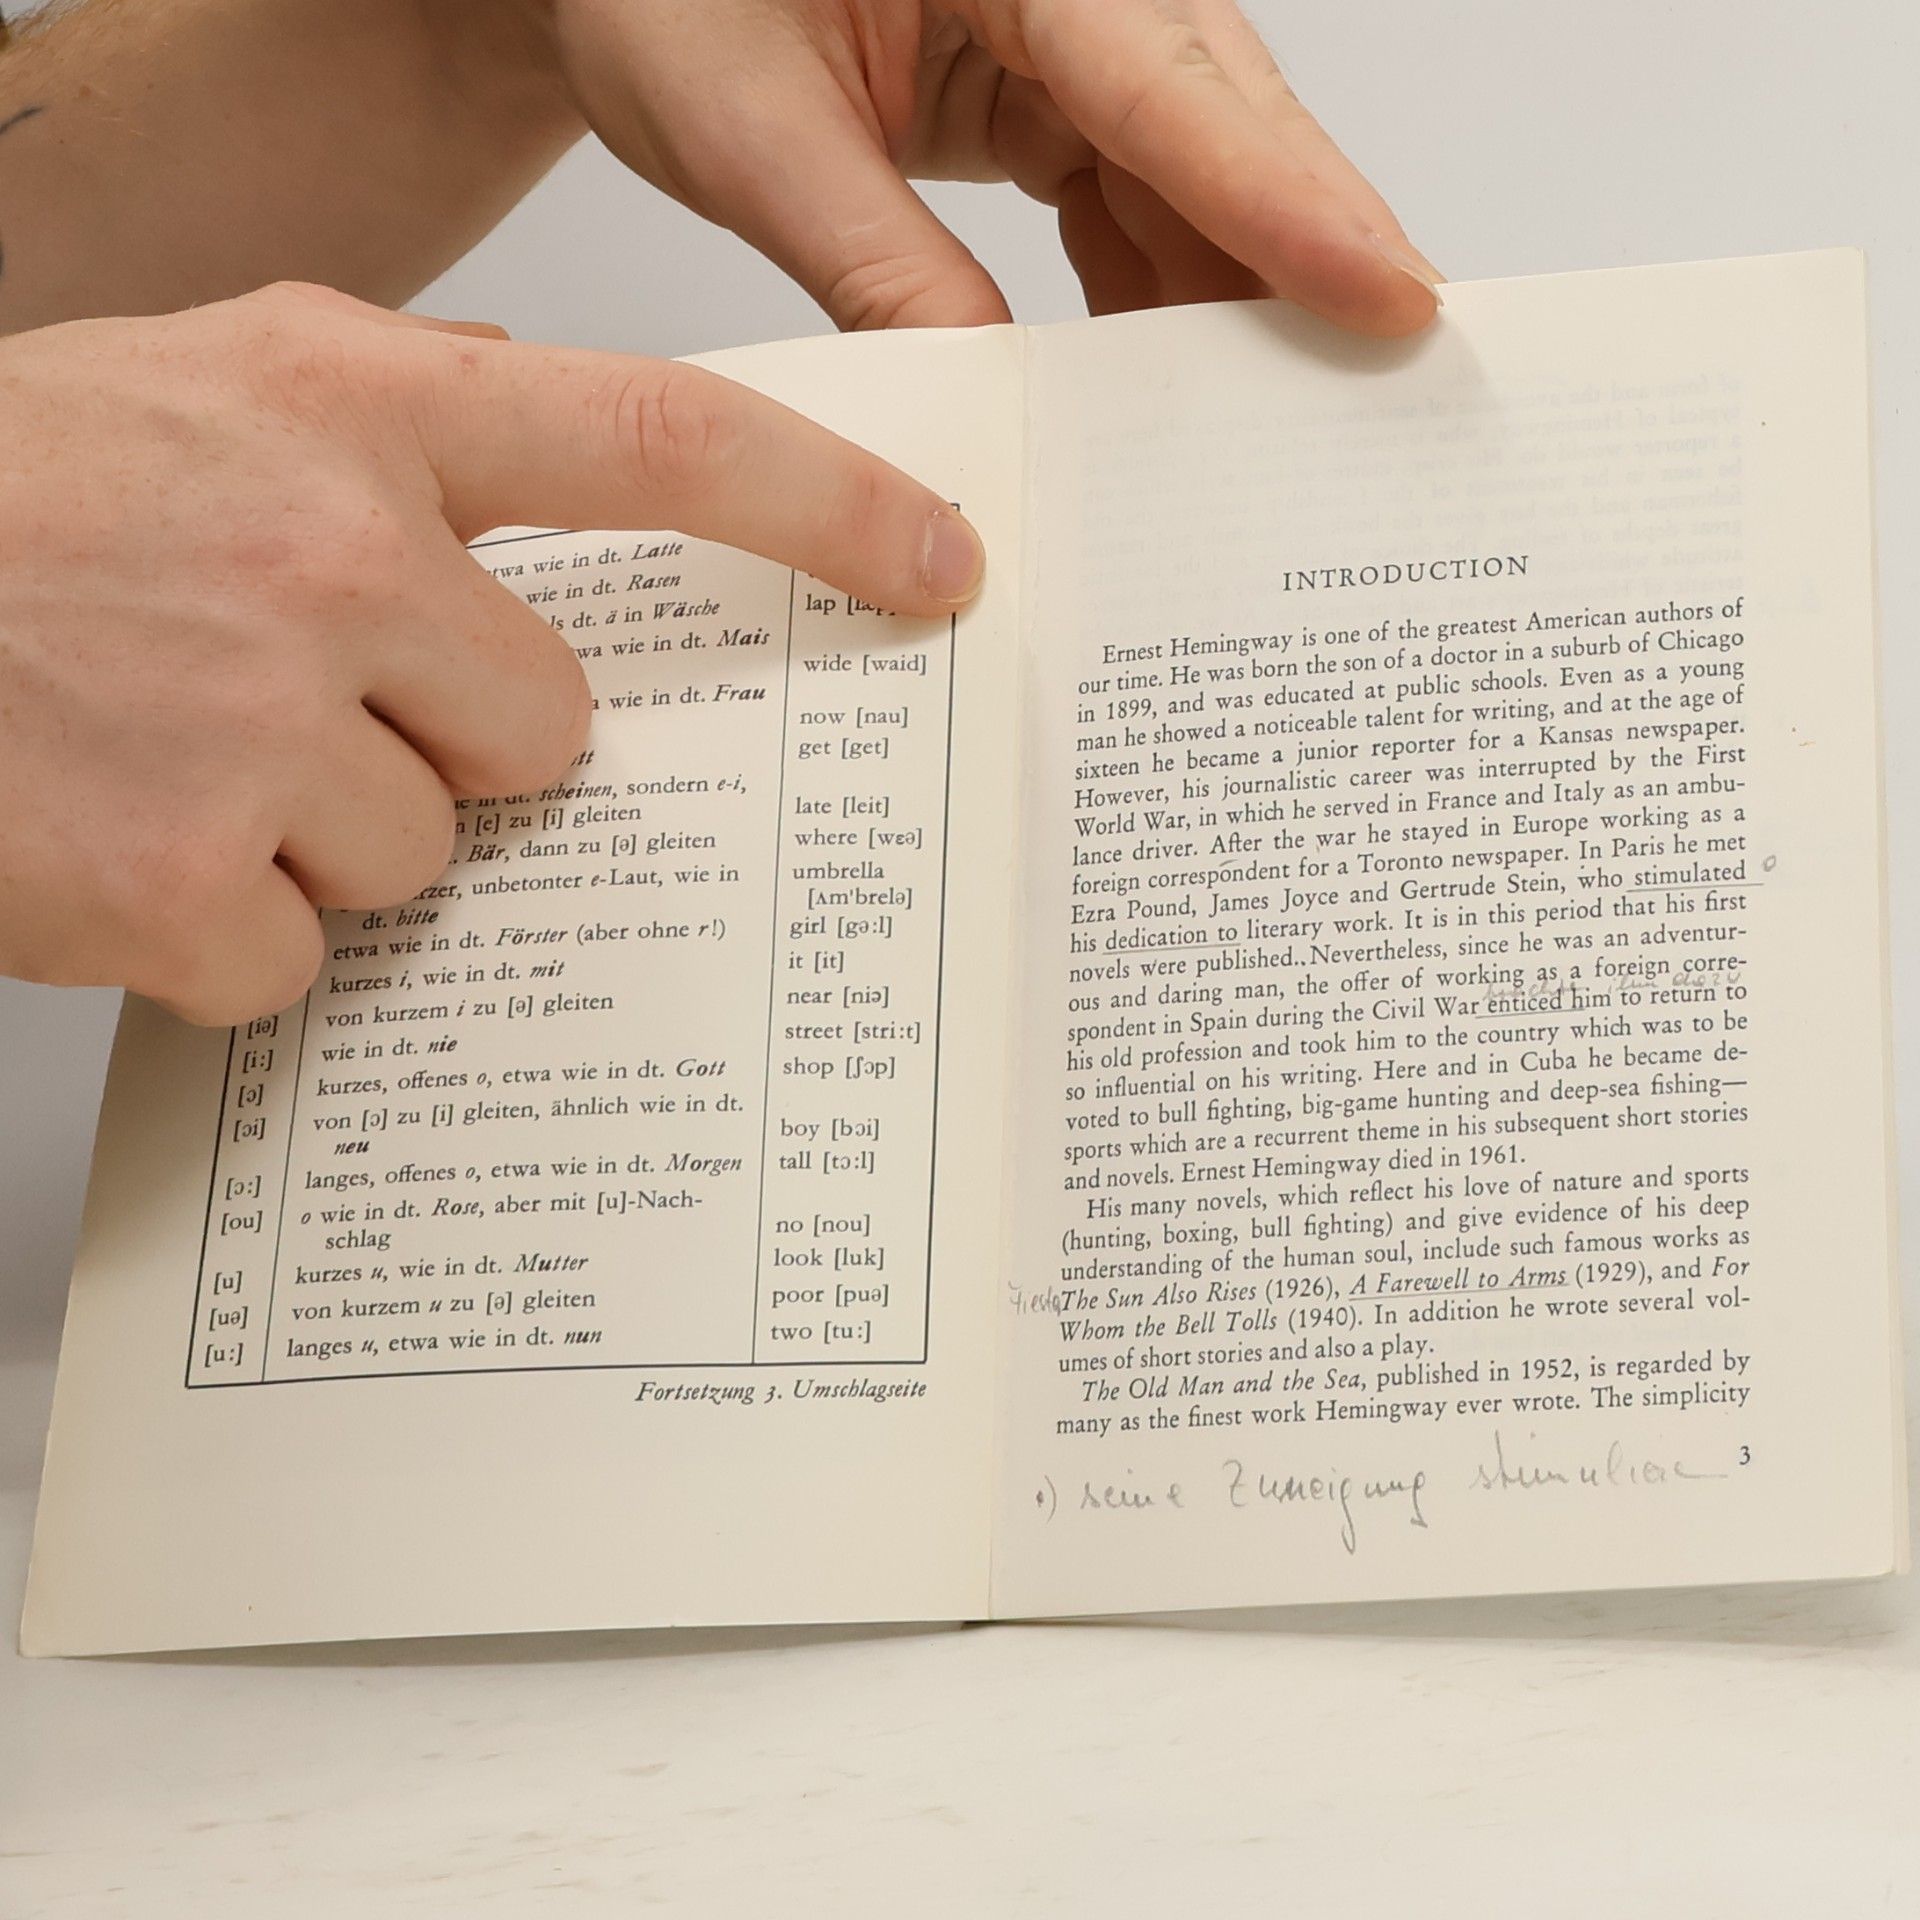 etwa wie in dt. Latte
wie in dt. Rasen
dt. ä in Wäsche
lap
wie in dt. Mais
wide [waid]
wie in dt. Frau
now [nau]
get [get]
in dt. scheinen, sondern e-i,
[e] zu [i] gleiten
late [leit]
Bär, dann zu [ə] gleiten
where [wɛə]
unbetonter e-Laut, wie in
umbrella
dt. bitte
[ʌm'brelə]
etwa wie in dt. Förster (aber ohne r!)
girl [gə:l]
kurzes i, wie in dt. mit
it [it]
[iə] von kurzem i zu [ə] gleiten
near [niə]
[i:] wie in dt. nie
street [stri:t]
[ɔ] kurzes, offenes o, etwa wie in dt. Gott
shop [ʃɔp]
[ɔi] von [ɔ] zu [i] gleiten, ähnlich wie in dt.
neu
boy [bɔi]
[ɔ:] langes, offenes o, etwa wie in dt. Morgen
tall [tɔ:l]
[ou] o wie in dt. Rose, aber mit [u]-Nach-
schlag
no [nou]
[u] kurzes u, wie in dt. Mutter
look [luk]
[uə] von kurzem u zu [ə] gleiten
poor [puə]
[u:] langes u, etwa wie in dt. nun
two [tu:]
Fortsetzung 3. Umschlagseite
INTRODUCTION
Ernest Hemingway is one of the greatest American authors of
our time. He was born the son of a doctor in a suburb of Chicago
in 1899, and was educated at public schools. Even as a young
man he showed a noticeable talent for writing, and at the age of
sixteen he became a junior reporter for a Kansas newspaper.
However, his journalistic career was interrupted by the First
World War, in which he served in France and Italy as an ambu-
lance driver. After the war he stayed in Europe working as a
foreign correspondent for a Toronto newspaper. In Paris he met
Ezra Pound, James Joyce and Gertrude Stein, who stimulated
his dedication to literary work. It is in this period that his first
novels were published. Nevertheless, since he was an adventur-
ous and daring man, the offer of working as a foreign corre-
ihn dazu
spondent in Spain during the Civil War enticed him to return to
his old profession and took him to the country which was to be
so influential on his writing. Here and in Cuba he became de-
voted to bull fighting, big-game hunting and deep-sea fishing—
sports which are a recurrent theme in his subsequent short stories
and novels. Ernest Hemingway died in 1961.
His many novels, which reflect his love of nature and sports
(hunting, boxing, bull fighting) and give evidence of his deep
understanding of the human soul, include such famous works as
Fiesta The Sun Also Rises (1926), A Farewell to Arms (1929), and For
Whom the Bell Tolls (1940). In addition he wrote several vol-
umes of short stories and also a play.
The Old Man and the Sea, published in 1952, is regarded by
many as the finest work Hemingway ever wrote. The simplicity
3
seine Zuneigung